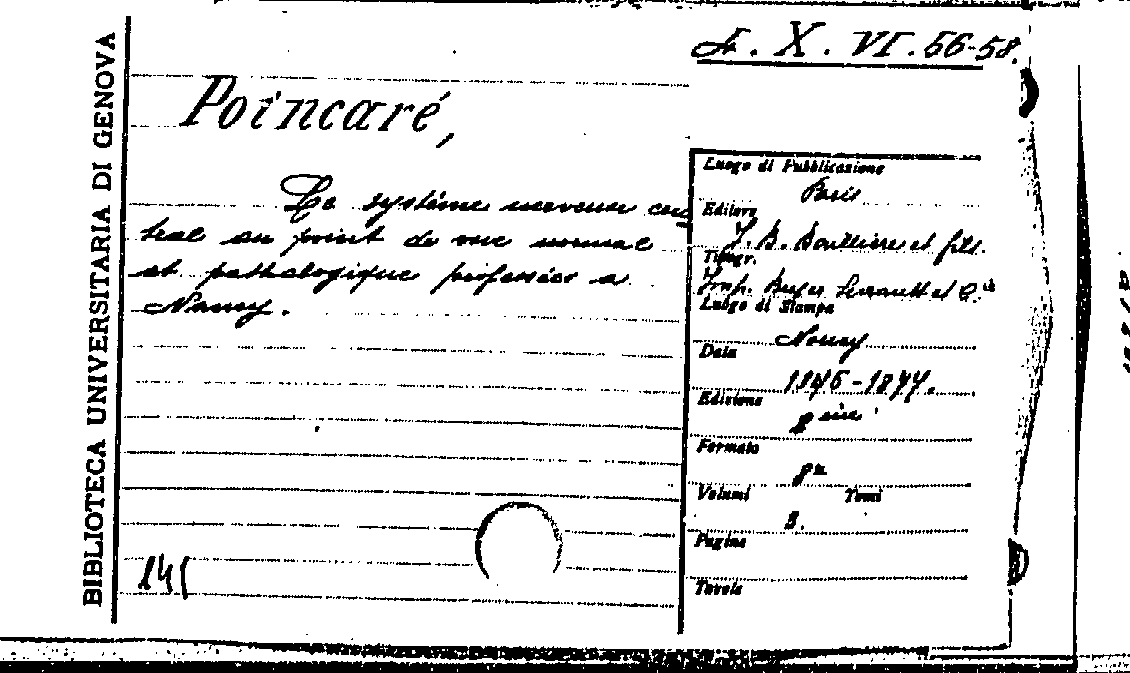 BIBLIOTECA UNIVERSITARIA DI GENOVA
X. VI. 56-58.
Poincaré,
Le système nerveux cen
tral au point de vue normal
et pathologique professées a
Nancy.
141
Luogo di Pubblicazione
Paris
Editore
J. B. Baillière et fils.
Tipogr.
Imp. Berger Levrault et C.ie
Luogo di Stampa
Nancy
Data
-1877.
Edizione
2
Formato
8°
Volumi Tomi
3.
Pagine
Tavole